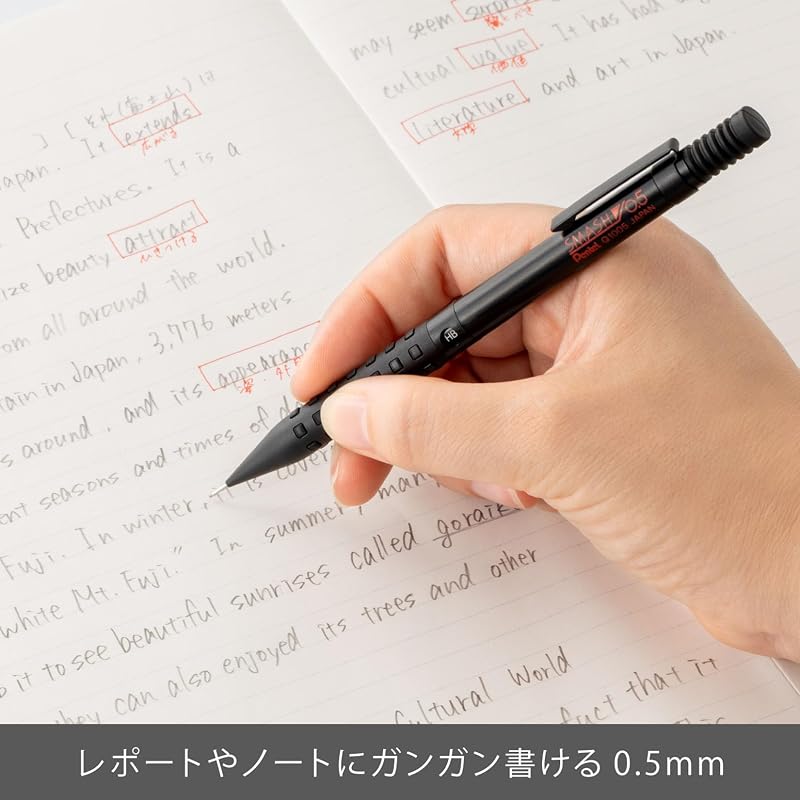 ] [ それ(富士山)は
apan. It extends
広がる
Prefectures. It is a
ize beauty attract
ひきつける
om all around the world.
tain in Japan, 3,776 meters
s around, and its appearanc
ent seasons and times of d
Fuji. In winter, it is cover
white Mt. Fuji." In summer, man
o it to see beautiful sunrises called goraik
they can also enjoyed its trees and other
cultural World
fact that it
may seem surpris
cultual value. It has had
価値
literature, and art in Japan.
文学
SMASH 0.5
Pentel Q1005 JAPAN
HB
レポートやノートにガンガン書ける 0.5mm